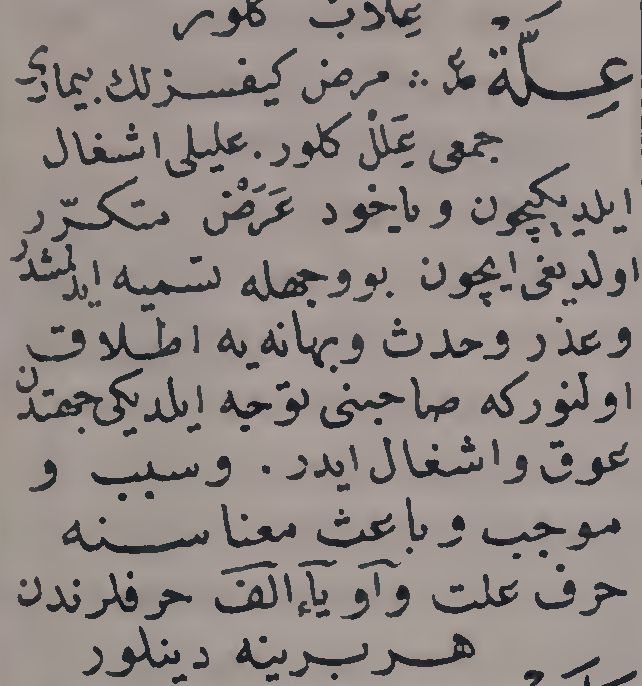 علاب كلور
عِلَّةٌ ع ∴ مرض كيفسزلك بيمارى
جمعى عِلَلْ كلور. عليلى اشغال
ايلديكيچون وياخود عَرَضْ متكرّر
اولديغى ايچون بووجهله تسميه ايدلمشدر
وعذر وحدث وبهانه يه اطلاق
اولنوركه صاحبنى توجه ايلديكى جهتدن
عوق واشغال ايدر. وسبب و
موجب وباعث معناسنه
حرف علت وآو يآء الف حرفلرندن
هربرينه دينلور